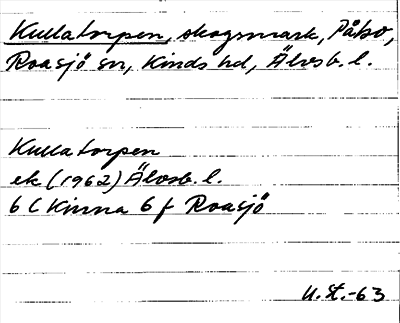 Kullatorpen, skogsmark, Påbo,
Roasjö sn, Kinds hd, Älvsb. l.
Kullatorpen
ek (1962) Älvsb. l.
6 C Kinna 6 f Roasjö
U. St. -63